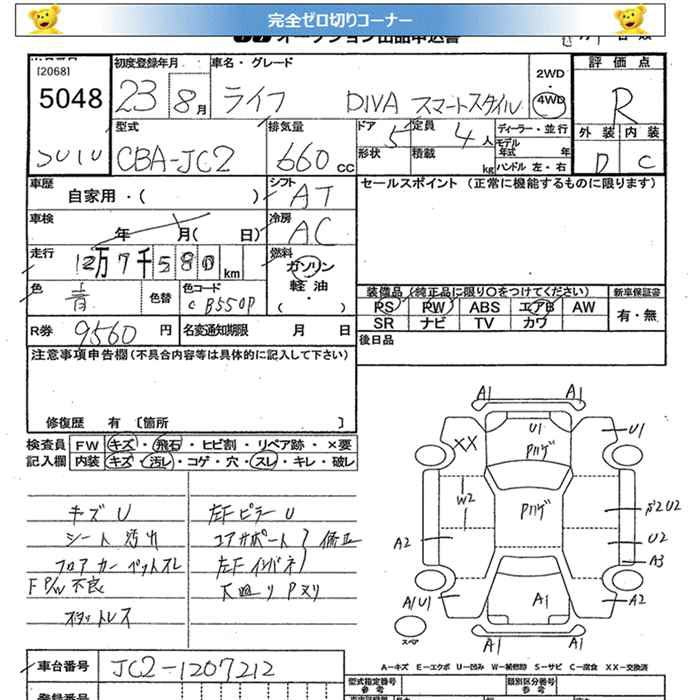 完全ゼロ切りコーナー
オークション出品申込書
[2068]
5048
初度登録年月
23 8月
車名・グレード
ライフ DIVA スマートスタイル
2WD
・
4WD
評価点
R
外装 内装
D C
型式
CBA-JC2
排気量
660 CC
ドア 5
定員 4人
ディーラー・並行
モデル年式 年
形状
積載 kg
ハンドル 左・右
車歴
自家用・( )
シフト
AT
セールスポイント (正常に機能するものに限ります)
車検
年 月( 日)
冷房
AC
走行
12万7千580km
燃料
ガソリン
軽油
・
( )
色
青
色替
色コード
B550P
装備品 (純正品に限り〇をつけてください)
新車保証書
PS PW ABS エアB AW
SR ナビ TV カワ
有・無
R券 9560円
名変通知期限 月 日
後日品
注意事項申告欄 (不具合内容等は具体的に記入して下さい)
修復歴 有 [箇所 ]
検査員記入欄
FW キズ・飛石・ヒビ割・リペア跡・×要
内装 キズ・汚レ・コゲ・穴・スレ・キレ・破レ
キズ U
シート 汚れ
フロアカーペットスレ
F P/W 不良
スタットレス
左FピラーU
コアサポート 修正
左Fインパネ
下廻りPヌリ
A1 A1
U1
XX
U1
Pハゲ
W2
Pハゲ
U2
A2
U2
A3
A1U1
A1
A2
スペア
A1 A1
A─キズ E─エクボ U─凹み W─補修跡 S─サビ C─腐食 XX─交換済
車台番号
JC2-1207212
型式指定番号
参考
類別区分番号
参考
登録番号